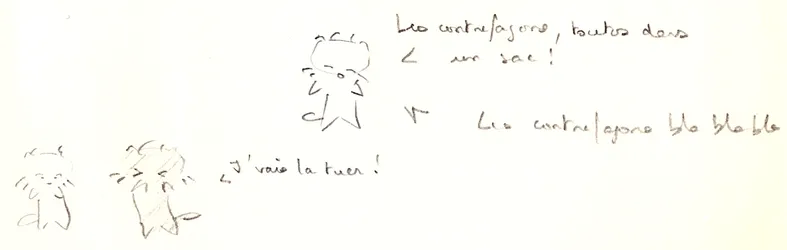 Les contrefaçons, toutes dans
un sac !
Les contrefaçons bla bla bla
J'vais la tuer !